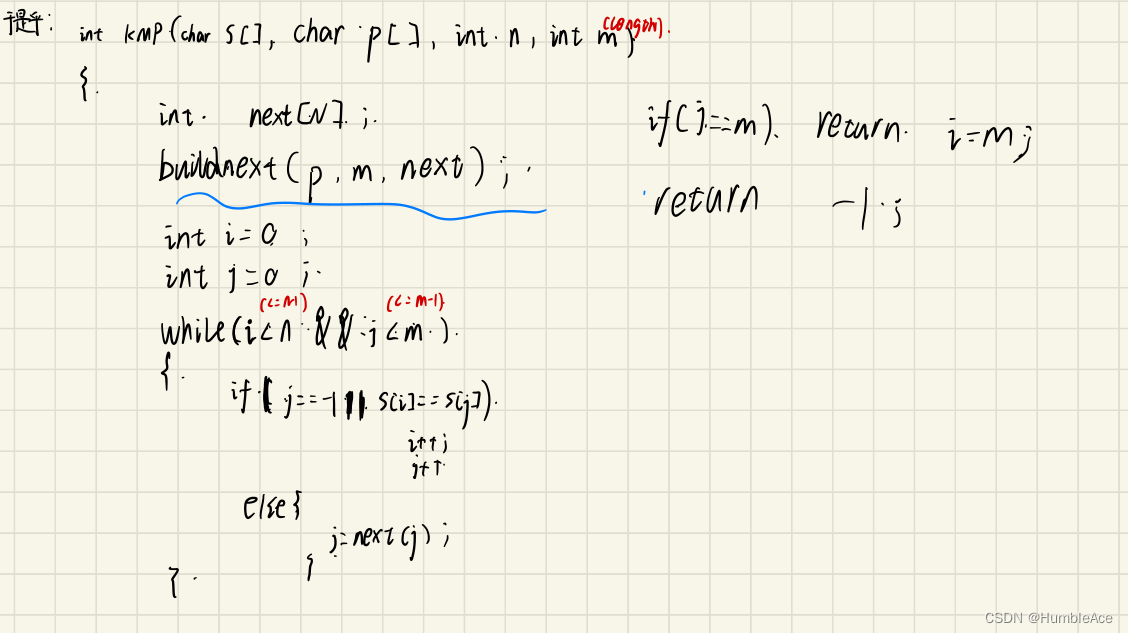 于是乎:
int kmp(char s[], char p[], int n, int m)
(length).
{
int next[N];
buildnext(p, m, next);
int i=0;
int j=0;
(<=n-1) (<=m-1)
while(i<n && j<m)
{
if(j==-1|| s[i]==s[j])
i++;
j++
else{
j=next(j);
}
}
if(j==m) return i=m;
return -1;
CSDN @HumbleAce